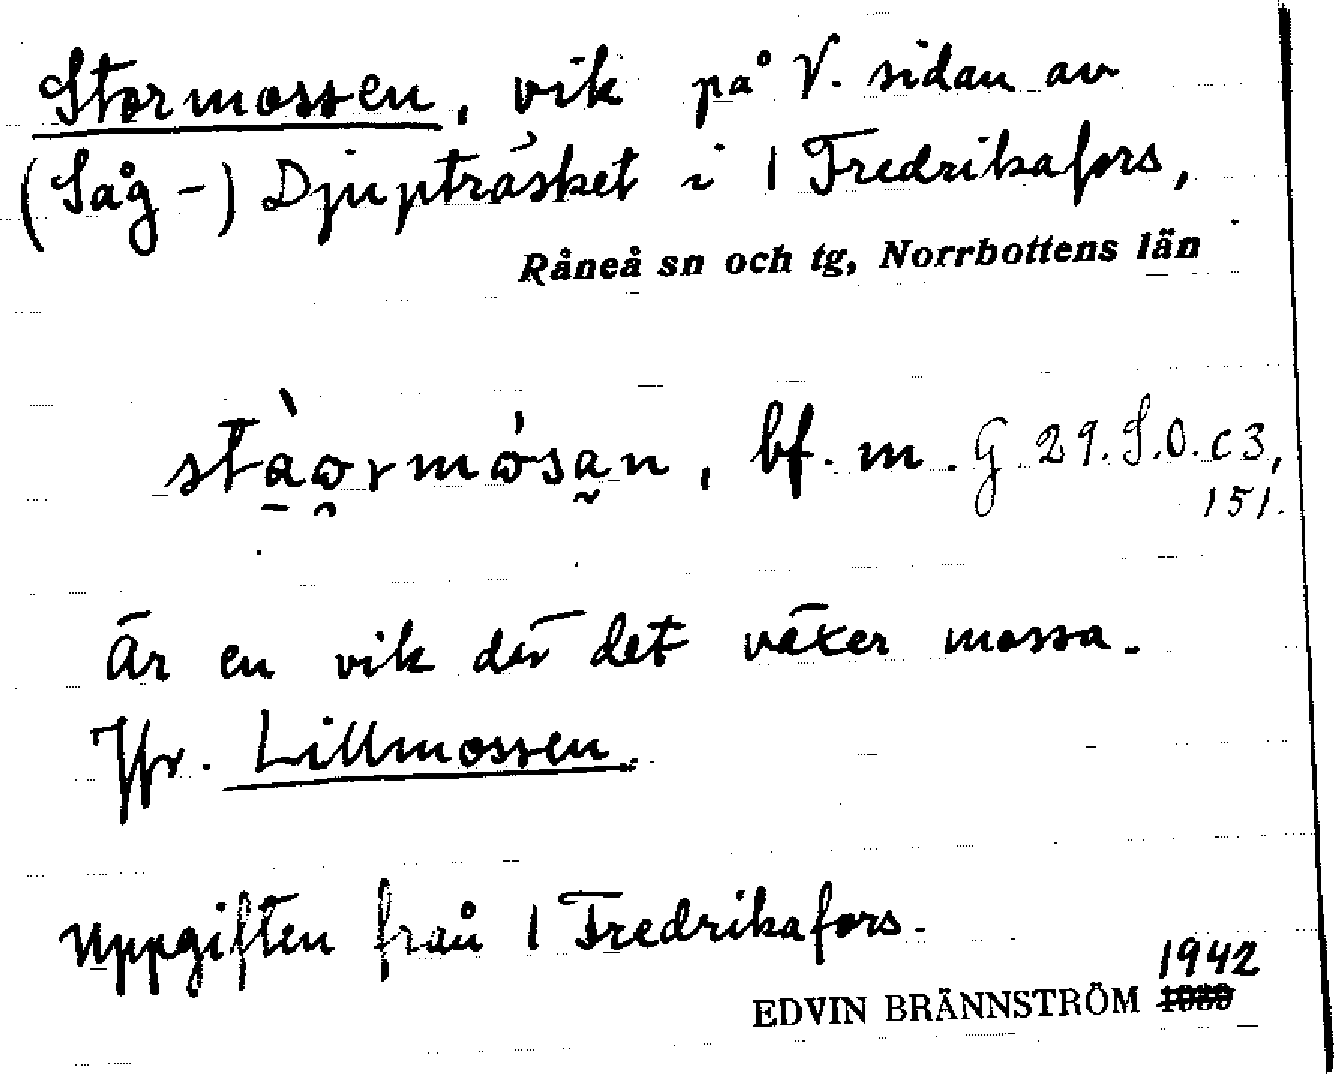 Stormossen, vik på V. sidan av
(Såg-) Djupträsket i 1 Fredrikafors,
Råneå sn och tg, Norrbottens län
bf. m. G 29. S.O. c3,
151.
Är en vik där det växer mossa.
Jfr. Lillmossen.
Uppgiften från 1 Fredrikafors.
1942
EDVIN BRÄNNSTRÖM